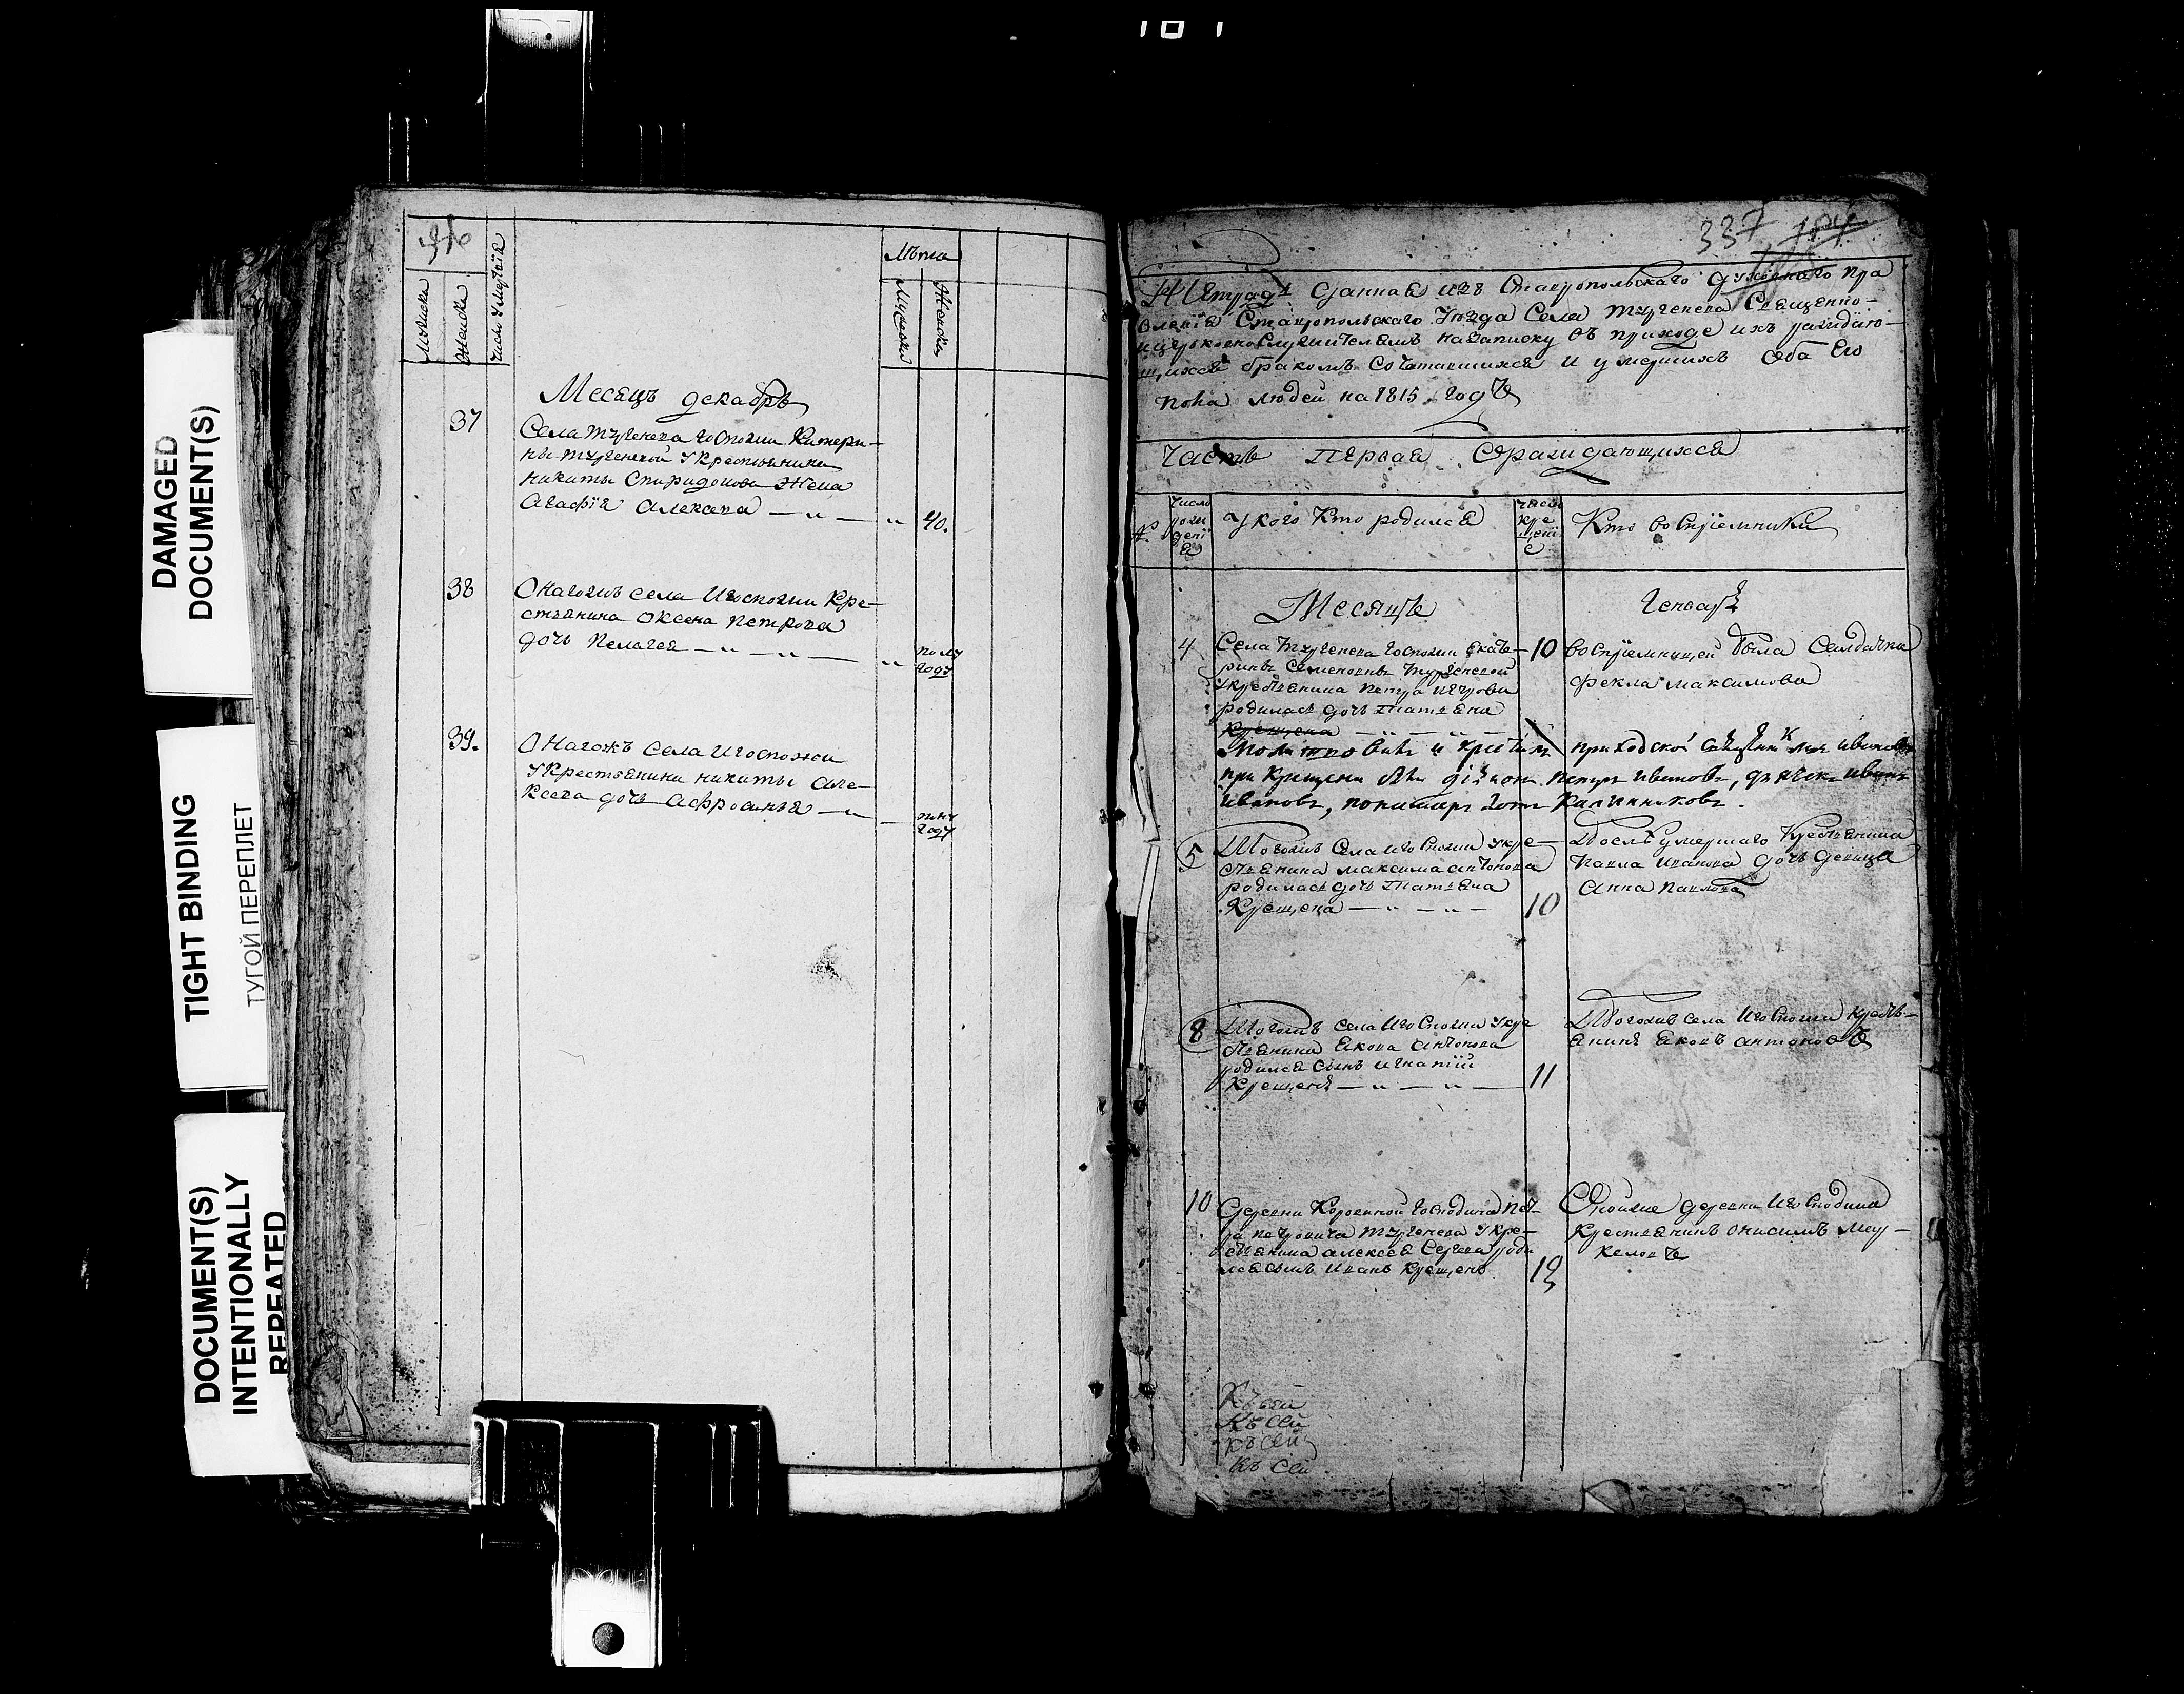 101
DAMAGED
DOCUMENT(S)
TIGHT BINDING
ТУГОЙ ПЕРЕПЛЕТ
DOCUMENT(S)
INTENTIONALLY
REPEATED
Мужска
Женска
Число умертвія
Лѣта
Мужска
Женска
Месяцъ декабрь
37
Села тургенева Госпожи Катери-
ны тургеневой у крестьянина
никиты Спиридонова Жена
Агафія Алексева
40.
38
Онагожъ села Игоспожи Кре-
стьянина оксена петрова
дочь пелагея
полу
году
39.
Онагожъ села Игоспожи
у крестьянина никиты але-
ксева дочь Афросинья
полу
году
337
Тетрадь данная изъ Ставропольскаго духовнаго пра
вленія Ставропольскаго уезда Села тургенева Священно-
ицерковнослужителямъ назаписку въ приходе ихъ раждаю-
щихся бракомъ Сочетавшихся и умершихъ обоего
пола людей на 1815 годъ
Часть Первая Ораждающихся
Число
рожде
нія
у кого Кто родился
число
кре
щені
я
Кто воспріемники
Месяцъ
Генварь
4
Села Тургенева Госпожи Екате-
рины Семеновны тургеневой
укрестьянина петра петрова
родилась дочь татьяна
крещена
10
воспріемницей была Салдатка
Фекла максимова
молитвовалъ и крестилъ приходской священникъ ивановъ
при крещени были діаконъ петръ ивановъ, дьячекъ иванъ
ивановъ, пономарь Калинниковъ.
5
Тогожъ Села Игоспожи укре-
стьянина максима антонова
родилась дочь татьяна
Крещена
10
После умершаго Крестьянина
павла иванова дочь девица
Анна Павлова
8
Тогожъ села Игоспожи укре
стьянина Якова антонова
родился сынъ игнатій
Крещенъ
11
Тогожъ села Игоспожи кресть-
янинъ Яковъ антоновъ
10
Деревни Коровиной Господина Пет-
ра петровича тургенева укре-
стьянина алексея Сергева роди
лся сынъ иванъ крещенъ
Оной же деревни Игосподина
Крестьянинъ Онисимъ Мар-
келовъ
Къ сей
Къ сей
къ сей
къ сей